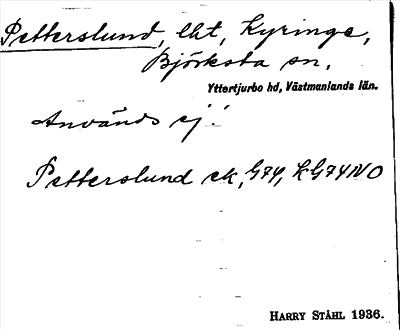 Petterslund, lht, Kyringe,
Björksta sn,
Yttertjurbo hd, Västmanlands län.
Används ej!
Petterslund ek, G74, LG74NO
HARRY STÅHL 1936.